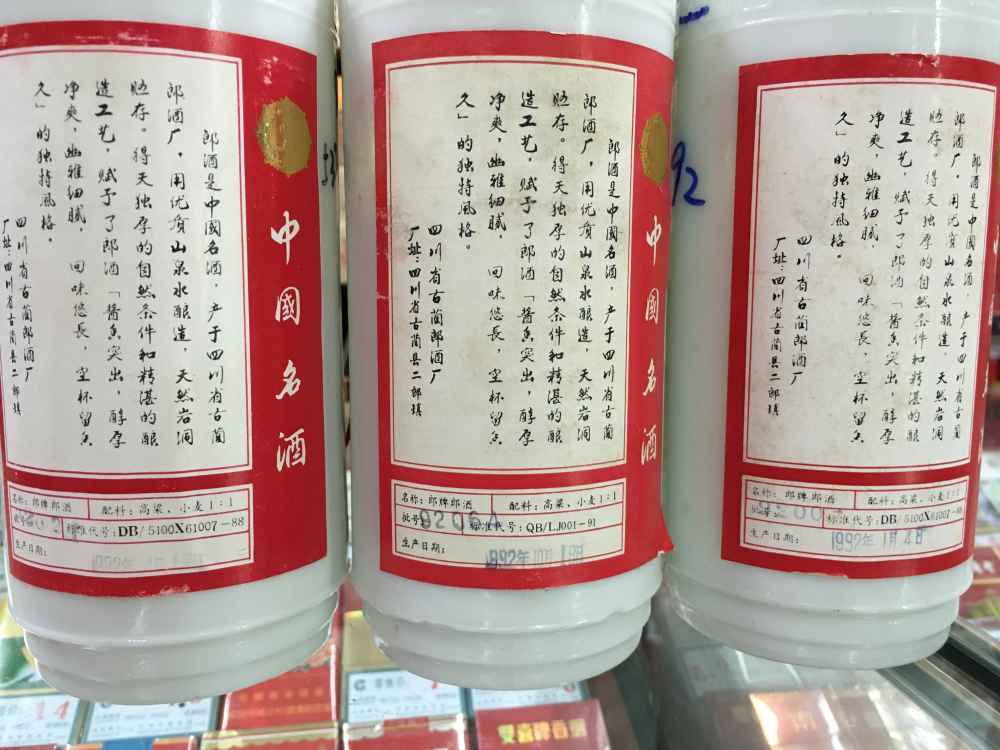 中國名酒
郎酒是中國名酒，产于四川省古蔺
郎酒厂，用优質山泉水酿造，天然岩洞
贮存。得天独厚的自然条件和精湛的酿
造工艺，赋予了郎酒「醬香突出，醇厚
净爽，幽雅细腻，回味悠長，空杯留香
久」的独特風格。
四川省古蔺郎酒厂
厂址：四川省古蔺县二郎镇
名称：郎牌郎酒 配料：高粱、小麦1：1
批号： 标准代号：DB/5100X61007-88
生产日期：
中國名酒
郎酒是中國名酒，产于四川省古蔺
郎酒厂，用优質山泉水酿造，天然岩洞
贮存。得天独厚的自然条件和精湛的酿
造工艺，赋予了郎酒「醬香突出，醇厚
净爽，幽雅细腻，回味悠長，空杯留香
久」的独特風格。
四川省古蔺郎酒厂
厂址：四川省古蔺县二郎镇
名称：郎牌郎酒 配料：高粱、小麦1：1
批号： 标准代号：QB/LJ001-91
生产日期： 1992年10月
92
郎酒是中國名酒，产于四川省古蔺
郎酒厂，用优質山泉水酿造，天然岩洞
贮存。得天独厚的自然条件和精湛的酿
造工艺，赋予了郎酒「醬香突出，醇厚
净爽，幽雅细腻，回味悠長，空杯留香
久」的独特風格。
四川省古蔺郎酒厂
厂址：四川省古蔺县二郎镇
名称：郎牌郎酒 配料：高粱、小麦1：1
批号： 标准代号：DB/5100X61007-88
生产日期： 1992年1月4日